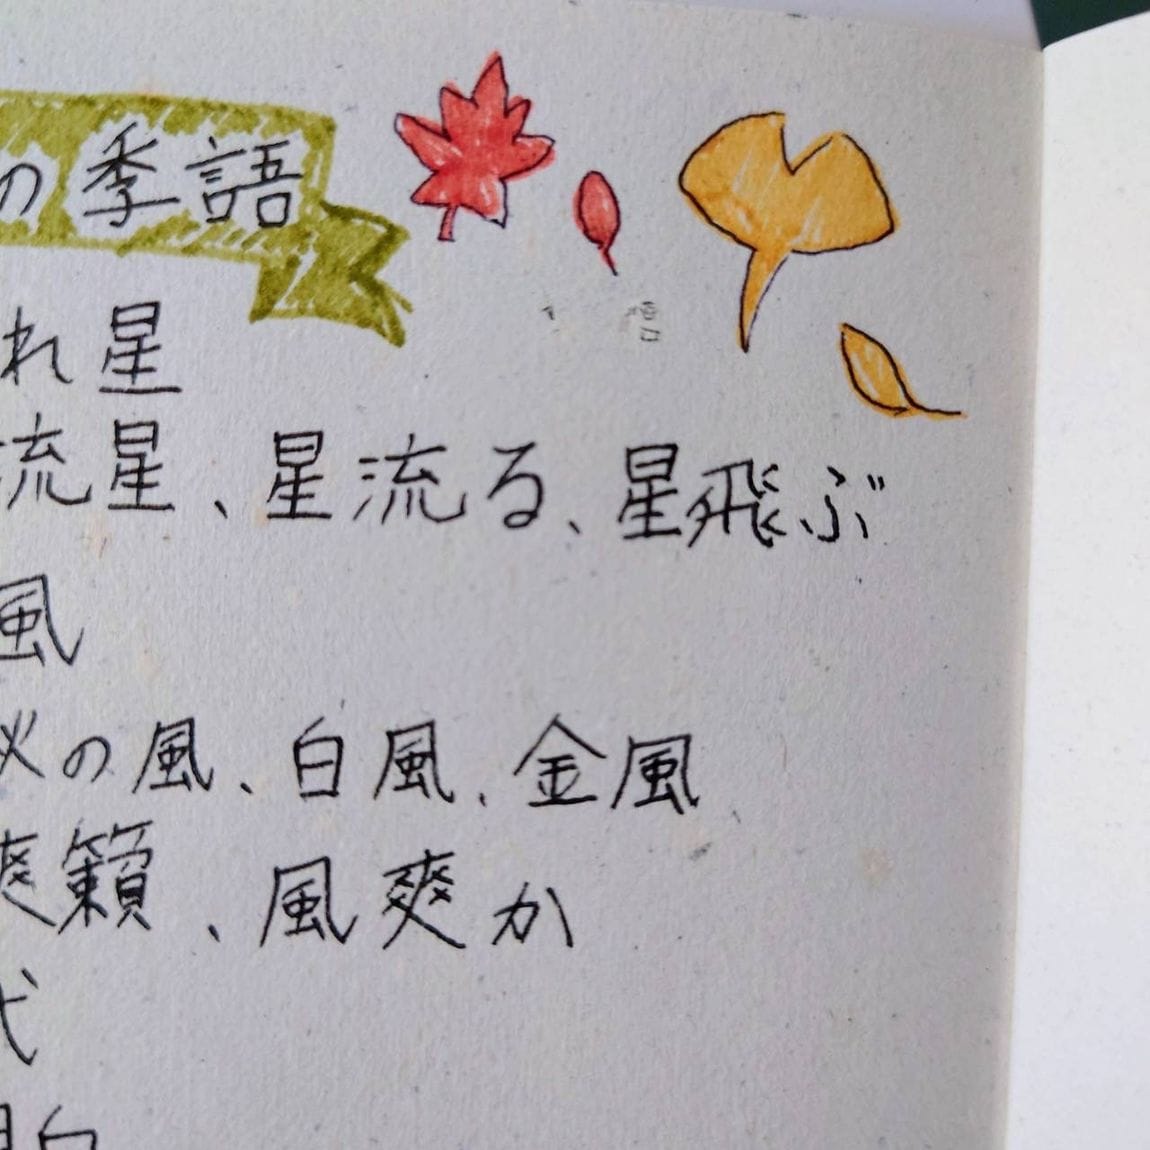 の季語
れ星
流星、星流る、星飛ぶ
風
の風、白風、金風
爽籟、風爽か